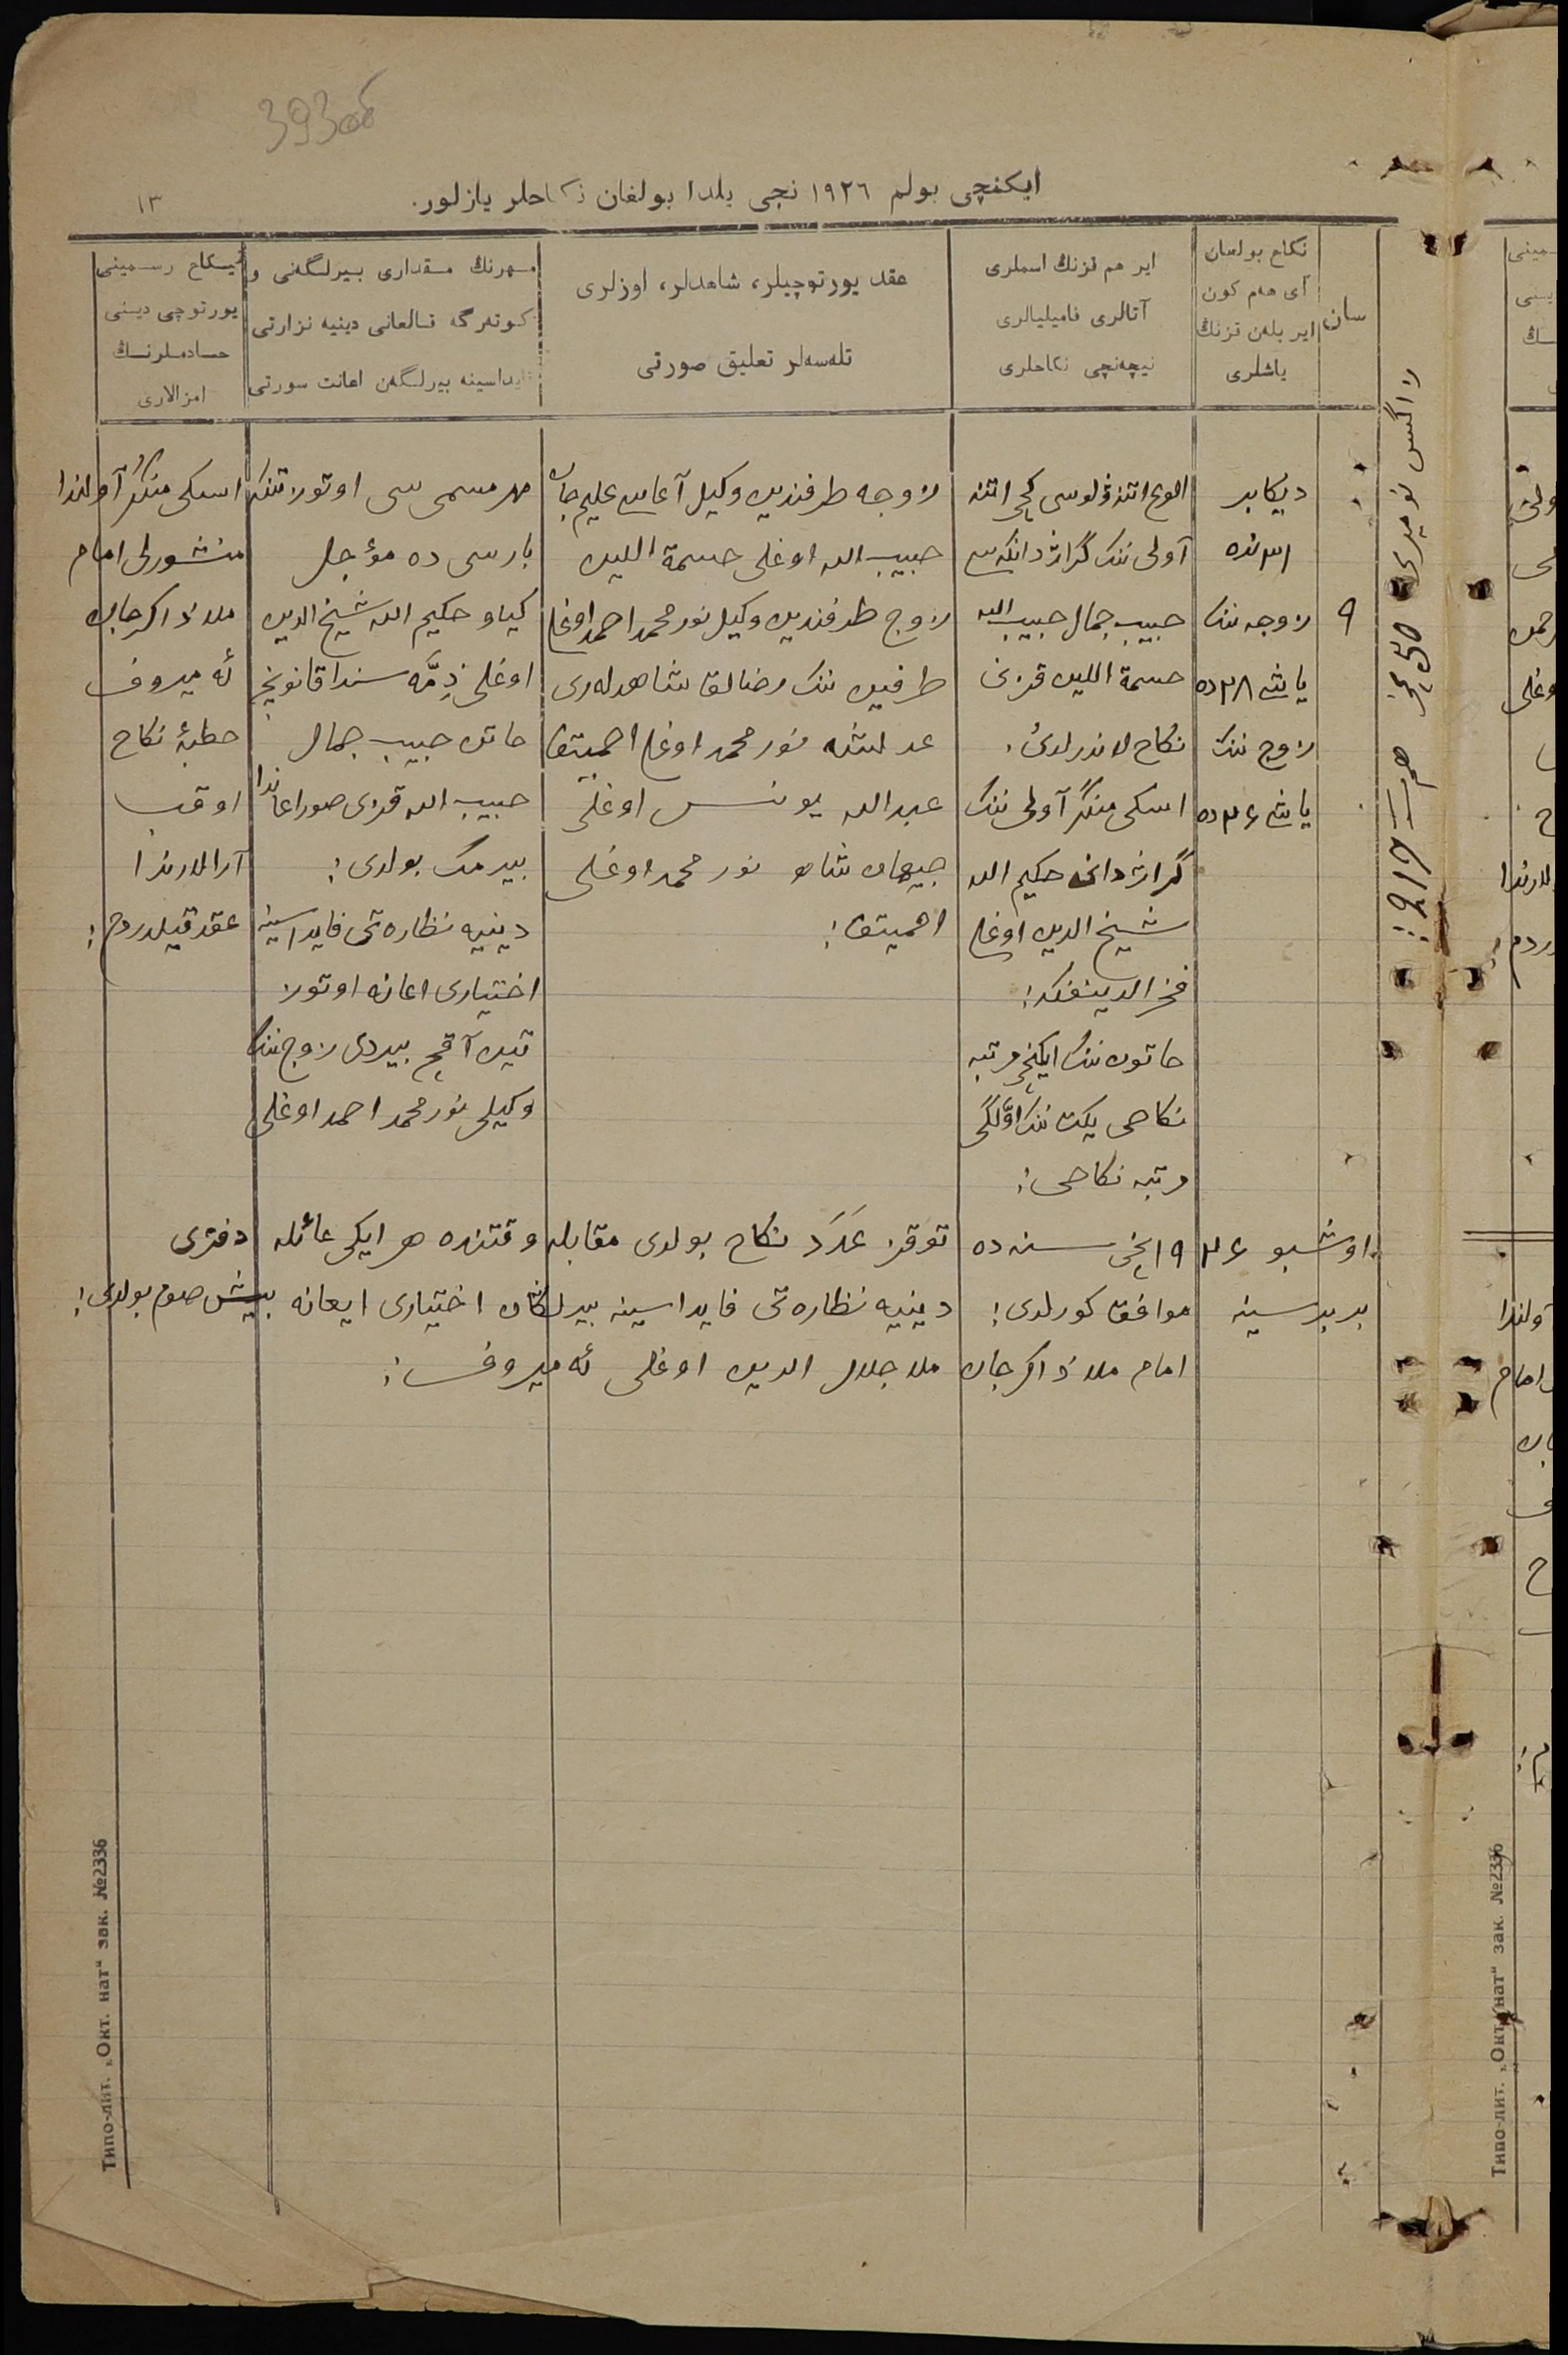 393об
ایكنچی بولم ١٩٢٦ نجی یلدا بولغان نكاحلر یازلور.
١٣
سان
نكاح بولعان
آی هەم كون
ایر بلەن قزنڭ
یاشلری
ایر هم قزنڭ اسملری
آتالری فامیلیالری
نیچەنچی نكاحلری
عقد یورتوچیلر، شاهدلر، اوزلری
تلەسەلر تعلیق صورتی
مهرنڭ مقداری بیرلگەنی و
كوتەرگە قالعانی دینیه نزارتی
فایداسینه بیرلگەن اعانت سورتی
نیكاح رسمینی
یورتوچی دینی
خادملرنڭ
امزالاری
٩
دیكابر
٣١ نده
زوجه ننك
یاشی ٢٨ ده
زوج ننك
یاشی ٢٦ ده
الوغ اتنه ولوسی كچی اتنه
آولی ننك گراژدانكەسی
حبیب جمال حبیب الله
حسمة اللین قزی
نكاح لاندرلدی.
اسكی منگر آولی ننك
گراژدانی حكیم الله
شیخ الدین اوغلی
فخرالدینفكه؛
خاتون ننك ایكنچی مرتبه
نكاحی یكت ننك اوّلگی
مرتبه نكاحی؛
زوجه طرفندین وكیل آغاسی علیم جان
حبیب الله اوغلی حسمة اللین
زوج طرفندین وكیل نور محمد احمد اوغلی
طرفین ننك رضالقا شاهدلەری
نور محمد اوغلی احمیتف
عبدالله یونس اوغلی
جیهان شاه نور محمد اوغلی
احمیتف؛
مهر مسمی سی اوتوز تنكە
بارسی ده مؤجل
كیاو حكیم الله شیخ الدین
اوغلی ذِمَّه سندا قانونچه
خاتن حبیب جمال
حبیب الله قزی صوراغاندا
بیرمك بولدی؛
دینیه نظارەتی فایداسینه
اختیاری اعانه اوتوز
تین آقچه بیردی زوج ننك
وكیلی نور محمد احمد اوغلی
اسكی منگر آولندا
منشورلی امام
ملا ذاكرجان
ئه میروف
خطبۀ نكاح
اوقب
آرالارندا
عقد قیلدردم؛
اوشبو ١٩٢٦ نچی سنه ده توقز عَدَد نكاح بولدی مقابله وقتنده هر ایكی عائله دفتری
بر برسینه موافق كورلدی؛ دینیه نظارەتی فایداسینه بیرلگان اختیاری ایعانه بیش صوم بولدی؛
امام ملا ذاكرجان ملا جلال الدین اوغلی ئه میروف؛
Типо-лит. „Окт. нат“ зак. №2336
Типо-лит. „Окт. нат“ зак. №2336